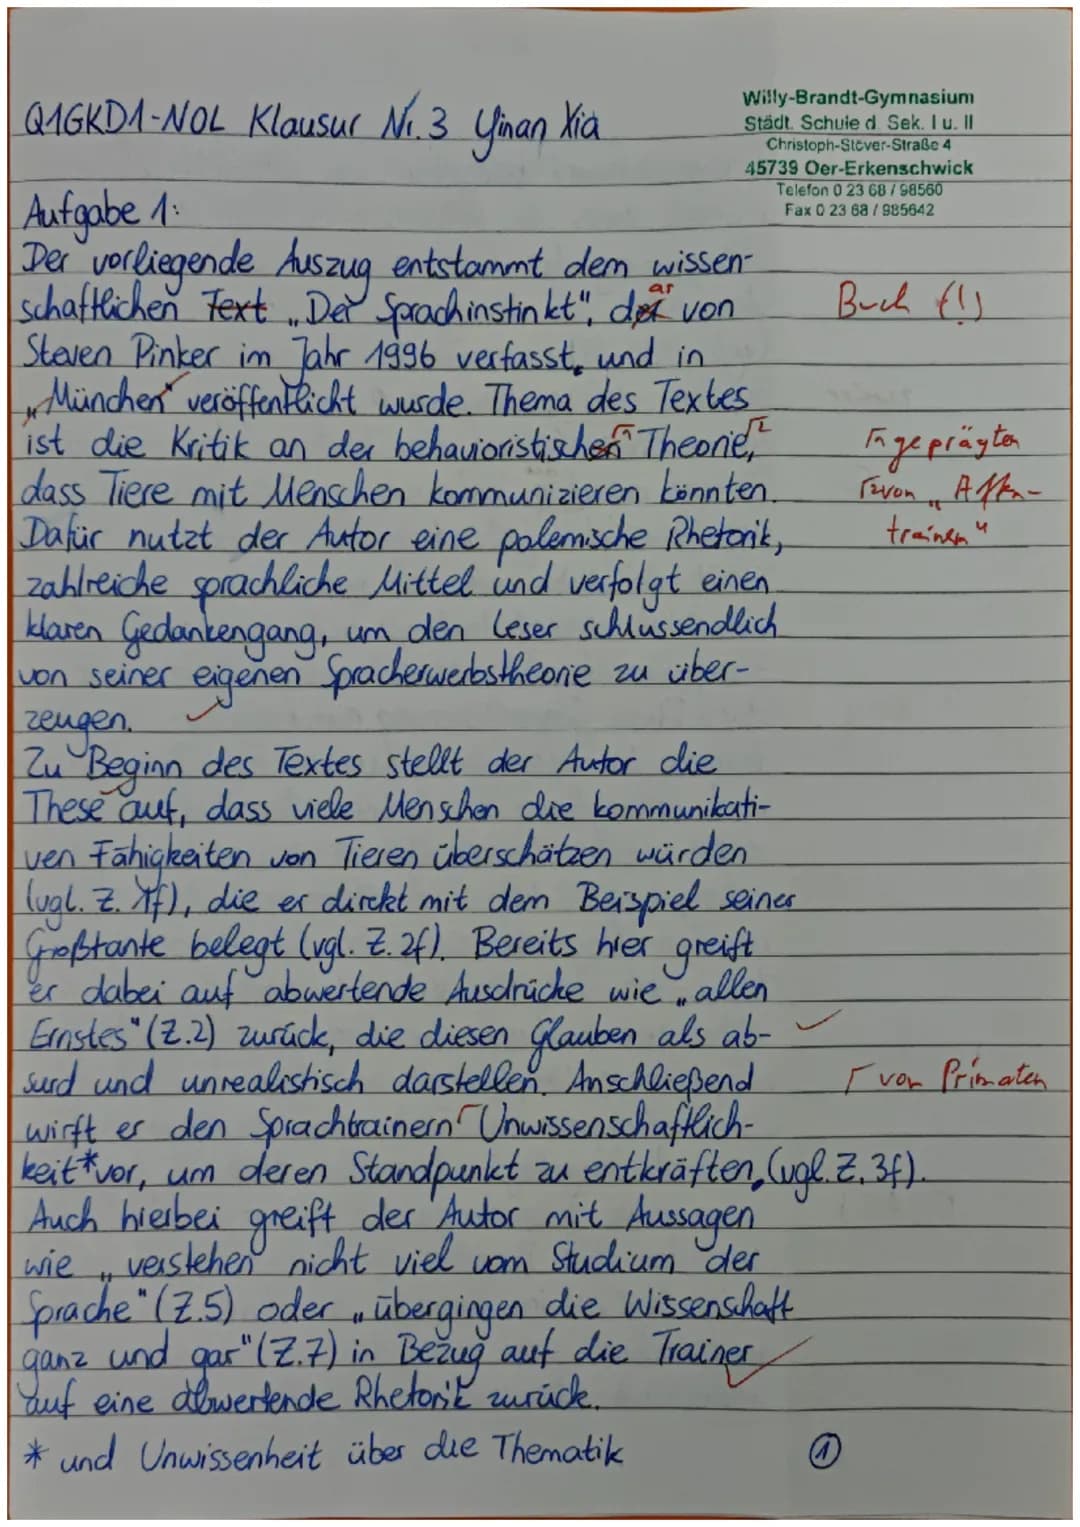 Q1GKD1-NOL Klausur Nr. 3 Yinan Xia
Willy-Brandt-Gymnasium
Städt. Schule d. Sek. I u. II
Christoph-Stöver-Straße 4
45739 Oer-Erkenschwick
Telefon 0 23 68 / 98560
Fax 0 23 68 / 985642
Aufgabe 1:
Der vorliegende Auszug entstammt dem wissen-
schaftlichen Text „Der Sprachinstinkt", der von
ar
Buch (!)
Steven Pinker im Jahr 1996 verfasst, und in
„München" veröffentlicht wurde. Thema des Textes
ist die Kritik an der behavioristischen Theorie,
Γ1 geprägten
dass Tiere mit Menschen kommunizieren könnten.
Γ2 von „Affen-
Dafür nutzt der Autor eine polemische Rhetorik,
trainern"
zahlreiche sprachliche Mittel und verfolgt einen
klaren Gedankengang, um den Leser schlussendlich
von seiner eigenen Spracherwerbstheorie zu über-
zeugen.
Zu Beginn des Textes stellt der Autor die
These auf, dass viele Menschen die kommunikati-
ven Fähigkeiten von Tieren überschätzen würden
(vgl. Z. 1f), die er direkt mit dem Beispiel seiner
Großtante belegt (vgl. Z. 2f). Bereits hier greift
er dabei auf abwertende Ausdrücke wie „allen
Ernstes" (Z.2) zurück, die diesen Glauben als ab-
surd und unrealistisch darstellen. Anschließend
Γ von Primaten
wirft er den Sprachtrainern Γ Unwissenschaftlich-
keit* vor, um deren Standpunkt zu entkräften, (vgl. Z. 3f).
Auch hierbei greift der Autor mit Aussagen
wie „verstehen nicht viel vom Studium der
Sprache" (Z.5) oder „übergingen die Wissenschaft
ganz und gar" (Z.7) in Bezug auf die Trainer
auf eine abwertende Rhetorik zurück.
* und Unwissenheit über die Thematik
1